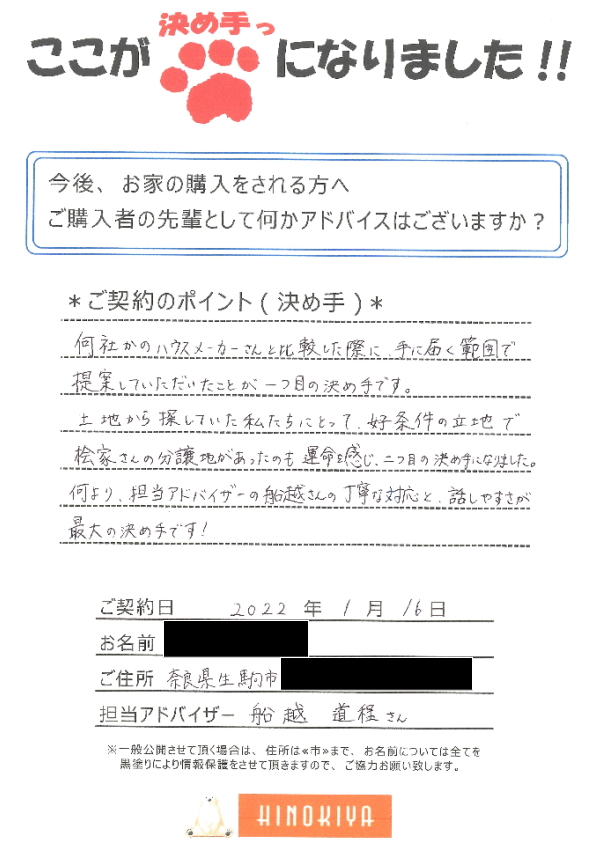 ここが決め手っになりました!!
今後、お家の購入をされる方へ
ご購入者の先輩として何かアドバイスはございますか？
＊ご契約のポイント(決め手)＊
何社かのハウスメーカーさんと比較した際に、手に届く範囲で
提案していただいたことが一つ目の決め手です。
土地から探していた私たちにとって、好条件の立地で
桧家さんの分譲地があったのも運命を感じ、二つ目の決め手になりました。
何より、担当アドバイザーの船越さんの丁寧な対応と、話しやすさが
最大の決め手です!
ご契約日 2022 年 1 月 16日
お名前
ご住所 奈良県生駒市
担当アドバイザー 船越 道経さん
※一般公開させて頂く場合は、住所は≪市≫まで、お名前については全てを
黒塗りにより情報保護をさせて頂きますので、ご協力お願い致します。
HINOKIYA